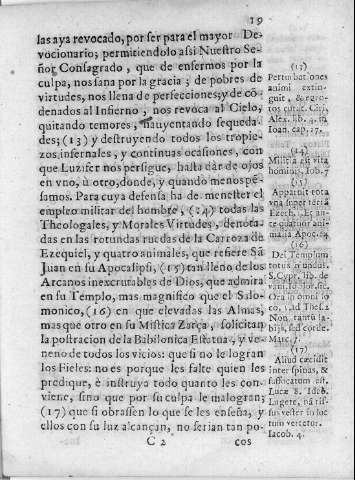 19
las aya revocado, por ser para el mayor De-
vocionario; permitiendolo assi Nuestro Se-
ñor Consagrado, que de enfermos por la
culpa, nos sana por la gracia; de pobres de
virtudes, nos llena de perfecciones; y de cõ-
denados al Infierno, nos revoca al Cielo,
quitando temores, hauyentando sequeda-
des; (13) y destruyendo todos los tropie-
zos infernales, y continuas ocasiones, con
que Luzifer nos persigue, hasta dar de ojos
en vno, ù otro, donde, y quando menos pẽ-
samos. Para cuya defensa ha de menester el
empleo militar del hombre, (14) todas las
Theologales, y Morales Virtudes, denota-
das en las rotundas ruedas de la Carroza de
Ezequiel, y quatro animales, que refiere Sã
Juan en su Apocalipsi, (15) tan lleno de los
Arcanos inexcrutables de Dios, que admira
en su Templo, mas magnifico que el Salo-
monico, (16) en que elevadas las Almas,
mas que otro en su Mistica Zarça, solicitan
la postracion de la Babilonica Estatua, y ve-
neno de todos los vicios: que si no le logran
los Fieles: no es porque les falte quien les
predique, è instruya todo quanto les con-
viene, sino que por su culpa le malogran;
(17) que si obrassen lo que se les enseña, y
ellos con su luz alcançan, no serian tan po-
C 2 cos
(13)
Perturbationes
animi extin-
guit, & ægro-
tos curat. Ciri.
Alex. lib. 4. in
Ioan. cap. 17.
(14)
Militia est vita
hominis. Iob. 7
(15)
Apparuit rota
vna super terrã
Ezech. Et an-
te quatuor ani-
malia Apoc. 4.
(16)
Dei Templum
S. Cypr. lib. de
Ora in omni lo
co. 1. ad Thes. 2
Marc. 7.
(17)
Aliud cecidit
inter spinas, &
suffocatum est.
Lucæ 8. Ideò
Lugete, nã ris-
sus vester in luc
tum vertetor.
Iacob. 4.